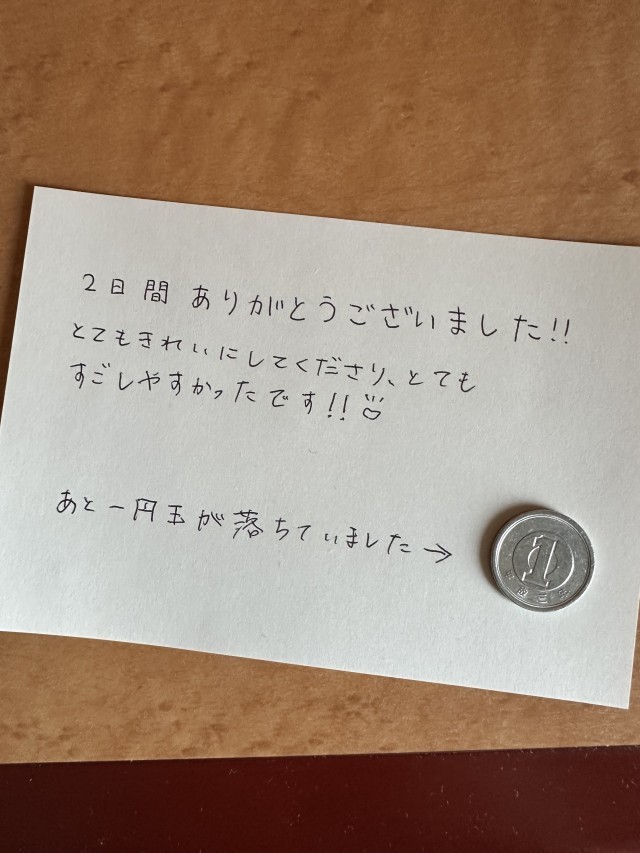 2日間 ありがとうございました!!
とてもきれいにしてくださり、とても
すごしやすかったです!!
あと一円玉が落ちていました→
1
平成三年